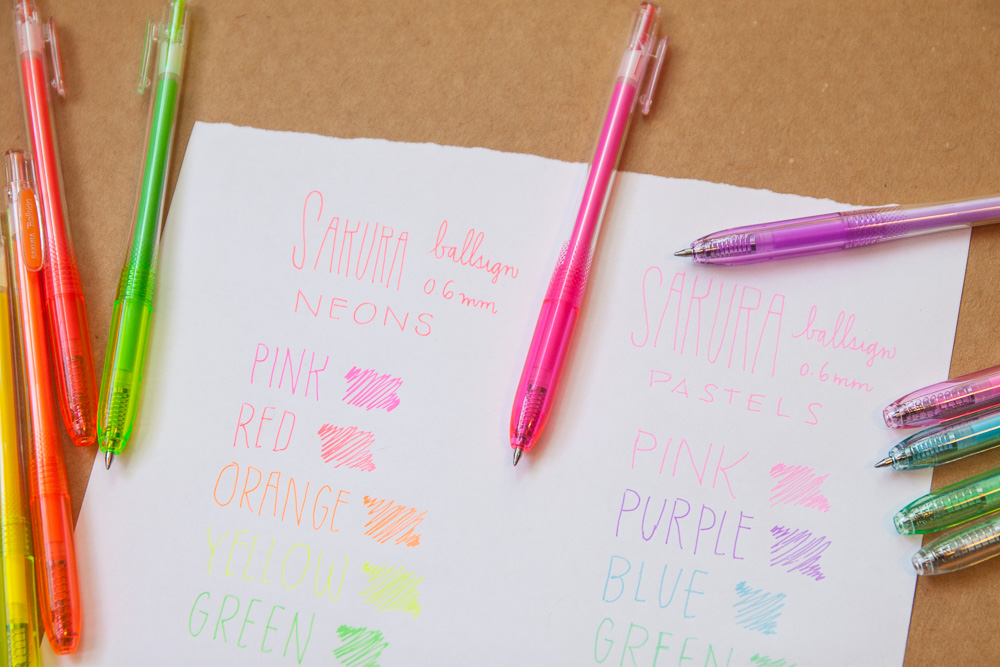 SAKURA ballsign
0.6mm
NEONS
PINK
RED
ORANGE
YELLOW
GREEN
SAKURA ballsign
0.6mm
PASTELS
PINK
PURPLE
BLUE
GREEN